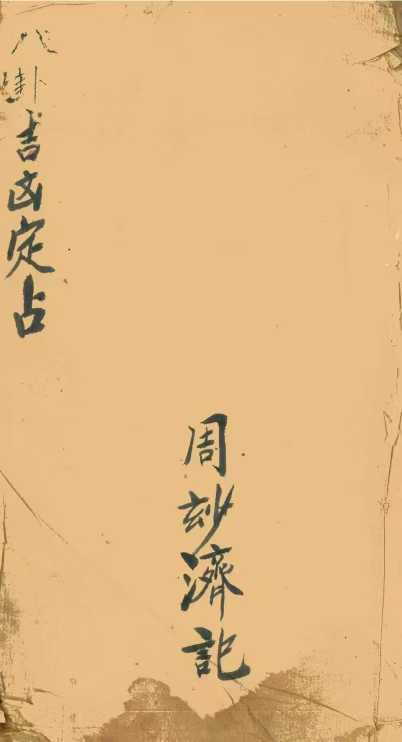 八卦吉凶定占
周玅濟記